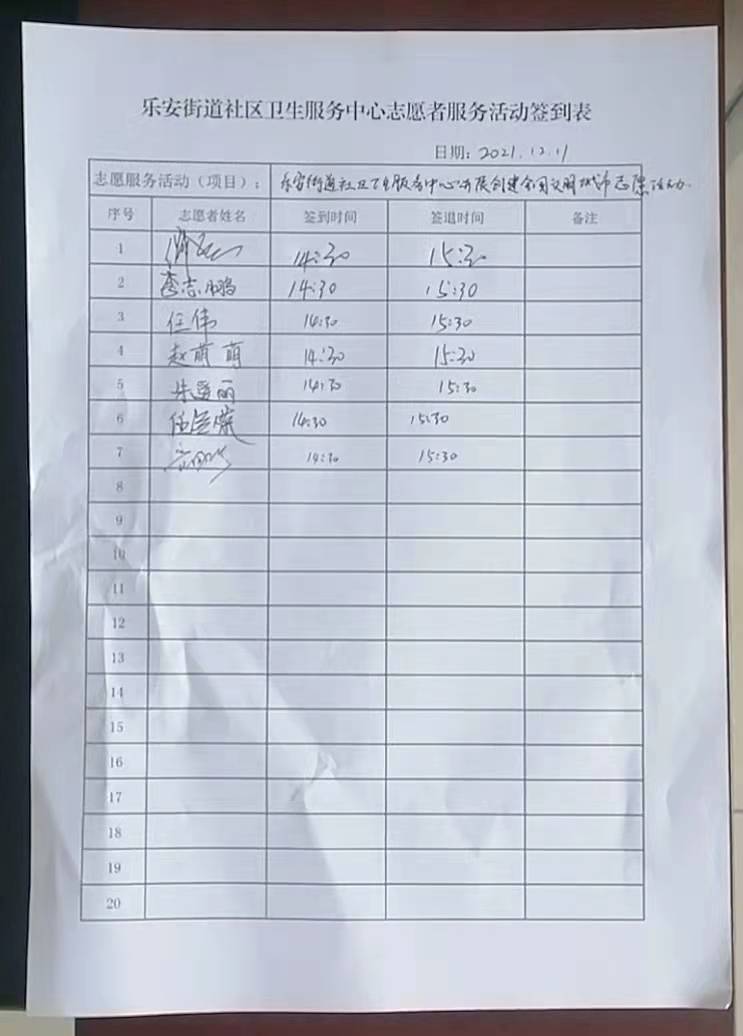 乐安街道社区卫生服务中心志愿者服务活动签到表
日期：2021.12.11
志愿服务活动（项目）： 乐安街道社区卫生服务中心开展创建全国文明城市志愿活动.
序号 志愿者姓名 签到时间 签退时间 备注
1 14:30 15:30
2 李志鹏 14:30 15:30
3 任伟 14:30 15:30
4 赵萌萌 14:30 15:30
5 14:30 15:30
6 14:30 15:30
7 14:30 15:30
8
9
10
11
12
13
14
15
16
17
18
19
20